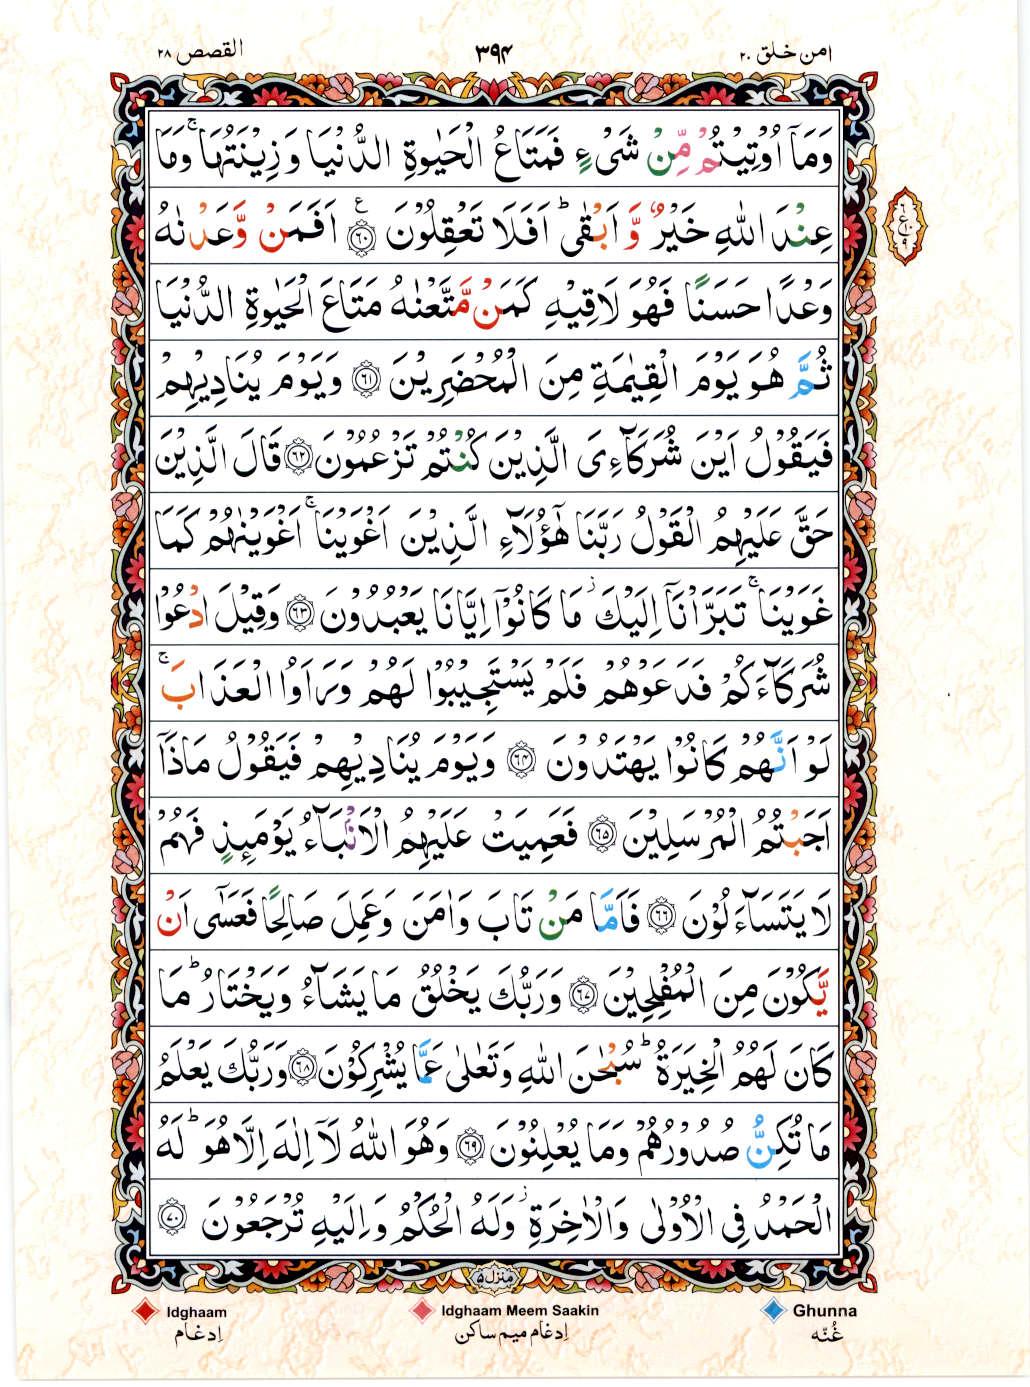 امن خلق ۲۰
۳۹۴
القصص ۲۸
وَمَاۤ اُوْتِيْتُمْ مِّنْ شَیْءٍ فَمَتَاعُ الْحَيٰوةِ الدُّنْيَا وَ زِيْنَتُهَا ۚ وَمَا
عِنْدَ اللّٰهِ خَيْرٌ وَّ اَبْقٰی ؕ اَفَلَا تَعْقِلُوْنَ ۟ع ﴿۶۰﴾ اَفَمَنْ وَّعَدْنٰهُ
وَعْدًا حَسَنًا فَهُوَ لَاقِيْهِ كَمَنْ مَّتَّعْنٰهُ مَتَاعَ الْحَيٰوةِ الدُّنْيَا
ثُمَّ هُوَ يَوْمَ الْقِيٰمَةِ مِنَ الْمُحْضَرِيْنَ ﴿۶۱﴾ وَيَوْمَ يُنَادِيْهِمْ
فَيَقُوْلُ اَيْنَ شُرَكَآءِیَ الَّذِيْنَ كُنْتُمْ تَزْعُمُوْنَ ﴿۶۲﴾ قَالَ الَّذِيْنَ
حَقَّ عَلَيْهِمُ الْقَوْلُ رَبَّنَا هٰۤؤُلَآءِ الَّذِيْنَ اَغْوَيْنَا ۚ اَغْوَيْنٰهُمْ كَمَا
غَوَيْنَا ۚ تَبَرَّاْنَاۤ اِلَيْكَ ؗ مَا كَانُوْۤا اِيَّانَا يَعْبُدُوْنَ ﴿۶۳﴾ وَقِيْلَ ادْعُوْا
شُرَكَآءَكُمْ فَدَعَوْهُمْ فَلَمْ يَسْتَجِيْبُوْا لَهُمْ وَرَاَوُا الْعَذَابَ ۚ
لَوْ اَنَّهُمْ كَانُوْا يَهْتَدُوْنَ ﴿۶۴﴾ وَيَوْمَ يُنَادِيْهِمْ فَيَقُوْلُ مَاذَاۤ
اَجَبْتُمُ الْمُرْسَلِيْنَ ﴿۶۵﴾ فَعَمِيَتْ عَلَيْهِمُ الْاَنْۢبَآءُ يَوْمَىِٕذٍ فَهُمْ
لَا يَتَسَآءَلُوْنَ ﴿۶۶﴾ فَاَمَّا مَنْ تَابَ وَاٰمَنَ وَعَمِلَ صَالِحًا فَعَسٰۤی اَنْ
يَّكُوْنَ مِنَ الْمُفْلِحِيْنَ ﴿۶۷﴾ وَرَبُّكَ يَخْلُقُ مَا يَشَآءُ وَيَخْتَارُ ؕ مَا
كَانَ لَهُمُ الْخِيَرَةُ ؕ سُبْحٰنَ اللّٰهِ وَتَعٰلٰی عَمَّا يُشْرِكُوْنَ ﴿۶۸﴾ وَرَبُّكَ يَعْلَمُ
مَا تُكِنُّ صُدُوْرُهُمْ وَمَا يُعْلِنُوْنَ ﴿۶۹﴾ وَهُوَ اللّٰهُ لَاۤ اِلٰهَ اِلَّا هُوَ ؕ لَهُ
الْحَمْدُ فِی الْاُوْلٰی وَالْاٰخِرَةِ ؗ وَلَهُ الْحُكْمُ وَاِلَيْهِ تُرْجَعُوْنَ ﴿۷۰﴾
منزل ۵
Idghaam Idghaam Meem Saakin Ghunna
اِدغام اِدغام میم ساکن غُنّه